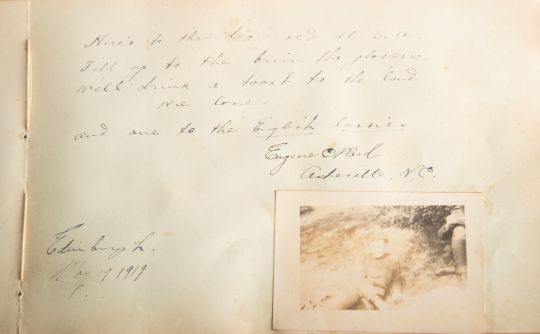 Here's to the dear old U.S.A.
Fill up to the brim the glasses
We'll drink a toast to the land
we love
and one to the English lassies
Eugene C Ward
Asheville, N.C.
Edinburgh.
May 19 1919